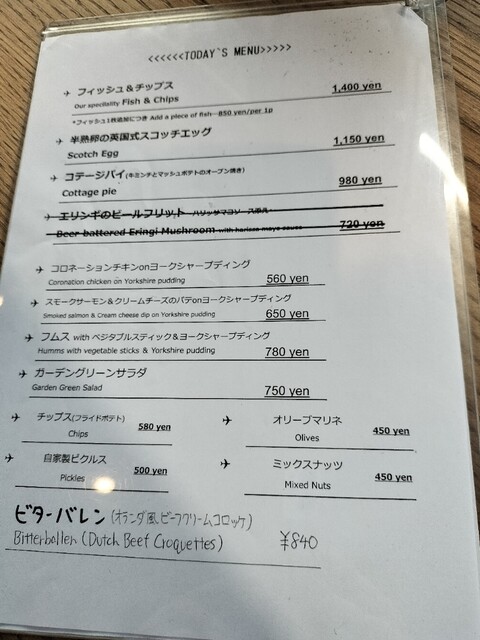 <<<<<<TODAY`S MENU>>>>>
フィッシュ&チップス
Our speciilelity Fish & Chips 1,400 yen
*フィッシュ1枚追加につき Add a piece of fish—850 yen/per 1p
半熟卵の英国式スコッチエッグ
Scotch Egg 1,150 yen
コテージパイ(牛ミンチとマッシュポテトのオーブン焼き)
Cottage pie 980 yen
エリンギのビールフリット ハリッサマヨソース添え
Beer battered Eringi Mushroom with harissa mayo sauce 720 yen
コロネーションチキンonヨークシャープディング
Coronation chicken on Yorkshire pudding 560 yen
スモークサーモン&クリームチーズのパテonヨークシャープディング
Smoked salmon & Cream cheese dip on Yorkshire pudding 650 yen
フムス with ベジタブルスティック&ヨークシャープディング
Humms with vegetable sticks & Yorkshire pudding 780 yen
ガーデングリーンサラダ
Garden Green Salad 750 yen
チップス(フライドポテト)
Chips 580 yen
オリーブマリネ
Olives 450 yen
自家製ピクルス
Pickles 500 yen
ミックスナッツ
Mixed Nuts 450 yen
ビターバレン(オランダ風ビーフクリームコロッケ)
Bitterballen (Dutch Beef Croquettes) ¥840